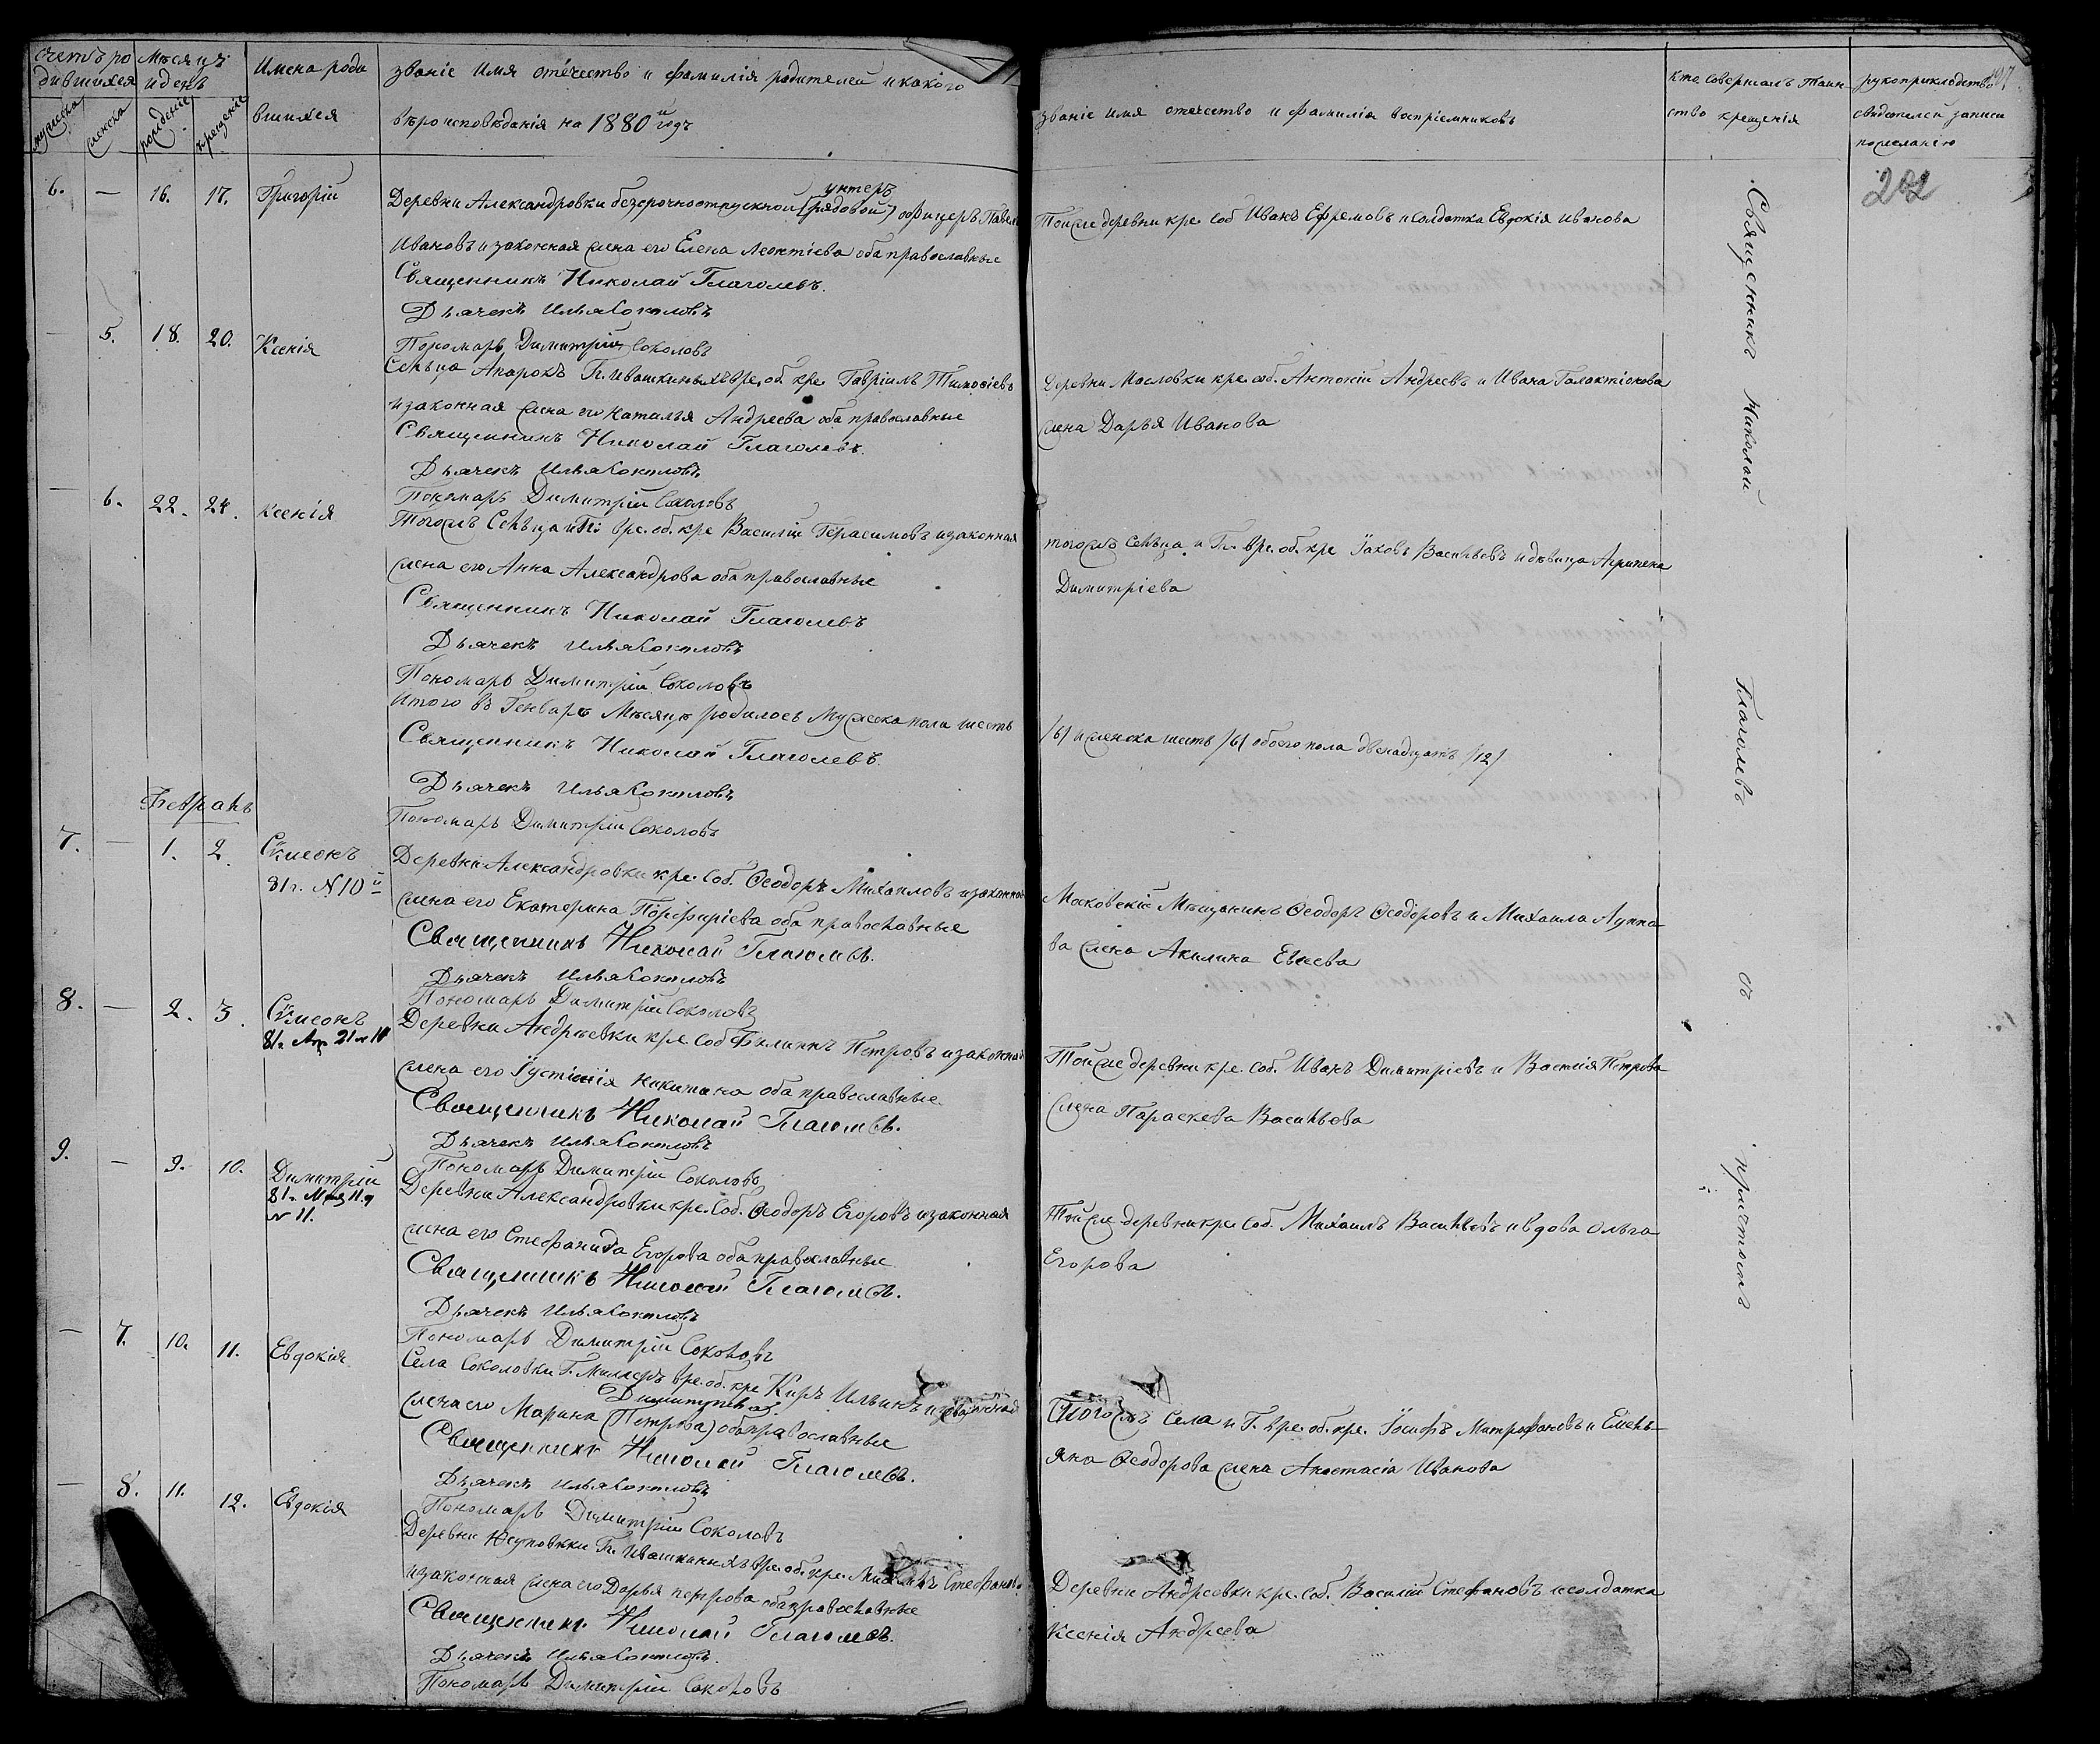 Счетъ ро
дившихся
Мѣсяцъ
и день
Имена роди
вшихся
званіе Имя отечество и фамилія родителей и какого
вѣроисповѣданія на 1880й годъ
мужеска
женска
рожденіе
крещеніе
званіе имя отечество и фамилія воспріемниковъ
кто совершалъ Таин
ство крещенія
рукоприкладство
свидетелей записи
пожеланію
202
6. — 16. 17. Григорій
унтеръ
Деревни Александровки безсрочноотпускной (рядовой) офицеръ Павелъ
Ивановъ и законная жена его Елена Леонтіева оба православные
Священникъ Николай Глаголевъ.
Дьячекъ Илья
Пономарь Димитрій Соколовъ
Тойже деревни кре. соб Иванъ Ефремовъ и солдатка Евдокія Иванова
— 5. 18. 20. Ксенія
Сельца Апарокъ Г. Ивашкиныхъ вре. об. кре. Гавріилъ Тимоѳіевъ
и законная жена его Наталья Андреева оба православные
Священникъ Николай Глаголевъ.
Дьячекъ Илья
Пономарь Димитрій Соколовъ
Деревни Масловки кре. соб. Антоній Андреевъ и Ивана Галактіонова
жена Дарья Иванова
— 6. 22. 24. Ксенія
Тогожъ Сельца и Г: вре. об. кре Василій Герасимовъ и законная
жена его Анна Александрова оба православные
Священникъ Николай Глаголевъ
Дьячекъ Илья
Пономарь Димитрій Соколовъ
тогожъ сельца и Г. вре. об. кре Іаковъ Васильевъ и девица Агрипена
Димитріева
Итого въ Генварѣ Мѣсяцѣ родилось Мужеска пола шесть
/6/ и женска шесть /6/ обоего пола двенадцать /12/
Священникъ Николай Глаголевъ.
Дьячекъ Илья
Пономарь Димитрій Соколовъ
Февраль
7. — 1. 2. Сѵмеонъ
81г. N10й
Деревни Александровки кре. соб. Ѳеодоръ Михаиловъ и законная
жена его Екатерина Порфиріева оба православные
Священникъ Николай Глаголевъ.
Дьячекъ Илья
Пономарь Димитрій Соколовъ
Московскіе Мѣщанинъ Ѳеодоръ Ѳеодоровъ и Михаила Луппо
ва жена Акилина Евсева
8. — 2. 3. Сѵмеонъ
Деревни Андрѣевки кре. соб Филиппъ Петровъ и законная
жена его Іустинія Никитина оба православные
Священникъ Николай Глаголевъ.
Дьячекъ Илья
Пономарь Димитрій Соколовъ
Тойже деревни кре. соб. Иванъ Димитріевъ и Василія Петрова
жена Параскева Васильева
9. — 9. 10. Димитрій
81г. Мая 11.д
N 11.
Деревни Александровки кре. соб. Ѳеодоръ Егоровъ и законная
жена его Стефанида Егорова оба православные
Священникъ Николай Глаголевъ.
Дьячекъ Илья
Пономарь Димитрій Соколовъ
Тойже деревни кре. соб. Михаилъ Васильевъ и вдова Ольга
Егорова
— 7. 10. 11. Евдокія
Села Соколовки Г. Миллеръ вре. об. кре Киръ Ильинъ и законная
Димитріева
жена его Марина (Петрова) оба православные
Священникъ Николай Глаголевъ.
Дьячекъ Илья
Пономарь Димитрій Соколовъ
Тогожъ Села и Г. вре. об. кре. Іосифъ Митрофановъ и Емель-
яна Ѳеодорова жена Анастасіа Иванова
— 8. 11. 12. Евдокія
Деревни Юсуповки Г. Ивашкиныхъ вре. об. кре. Стефановъ
и законная жена его Дарья Петрова оба православные
Священникъ Николай Глаголевъ.
Дьячекъ Илья
Пономарь Димитрій Соколовъ
Деревни Андреевки кре. соб. Василій Стефановъ и солдатка
Ксенія Андреева
Священникъ Николай Глаголевъ съ причтомъ